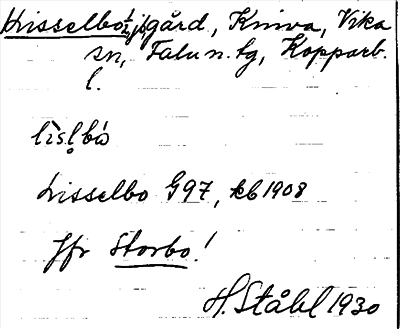 Lisselbo, jgård, Kniva, Vika
sn, Falu n. tg, Kopparb.
l.
lìsl̥bó
Lisselbo G97, kb 1908
Jfr Storbo!
H. Ståhl 1930